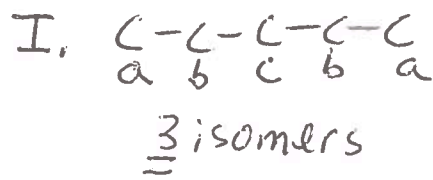 I. C-C-C-C-C
a b c b a
3 isomers